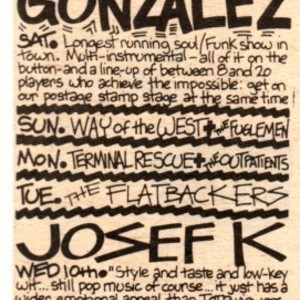 GONZALEZ
SAT. Longest running soul/Funk show in
town. Multi-instrumental - all of it on the
button - and a line-up of between 8 and 20
players who achieve the impossible: get on
our postage stamp stage at the same time!
SUN. WAY OF THE WEST + THE FUGLEMEN
MON. TERMINAL RESCUE + THE OUTPATIENTS
TUE. THE FLATBACKERS
JOSEF K
WED 10th. "Style and taste and low-key
wit... still pop music of course... it just has a
wider emotional appeal than